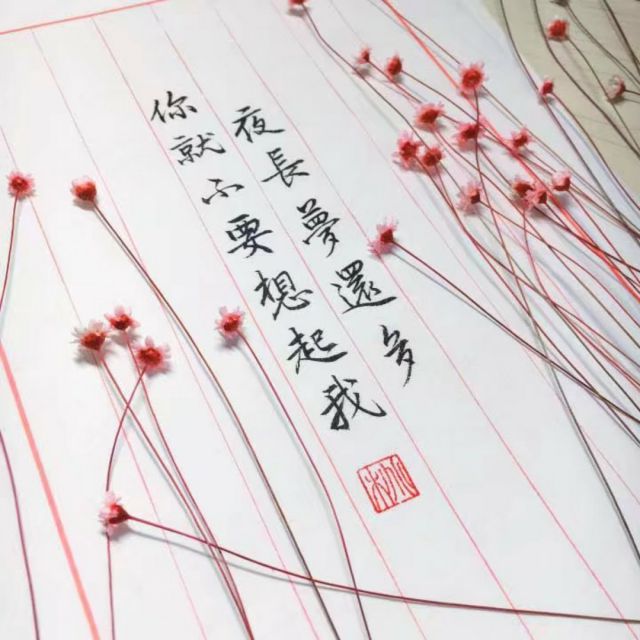 夜長夢還多
你就不要想起我